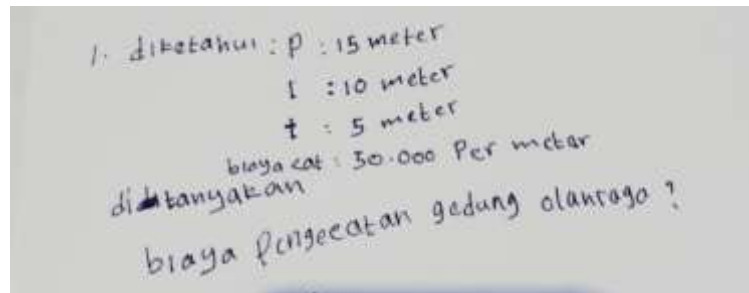 1. diketahui : p : 15 meter
l : 10 meter
t : 5 meter
biaya cat : 50.000 Per meter
ditanyakan
biaya Pengecatan gedung olahraga ?